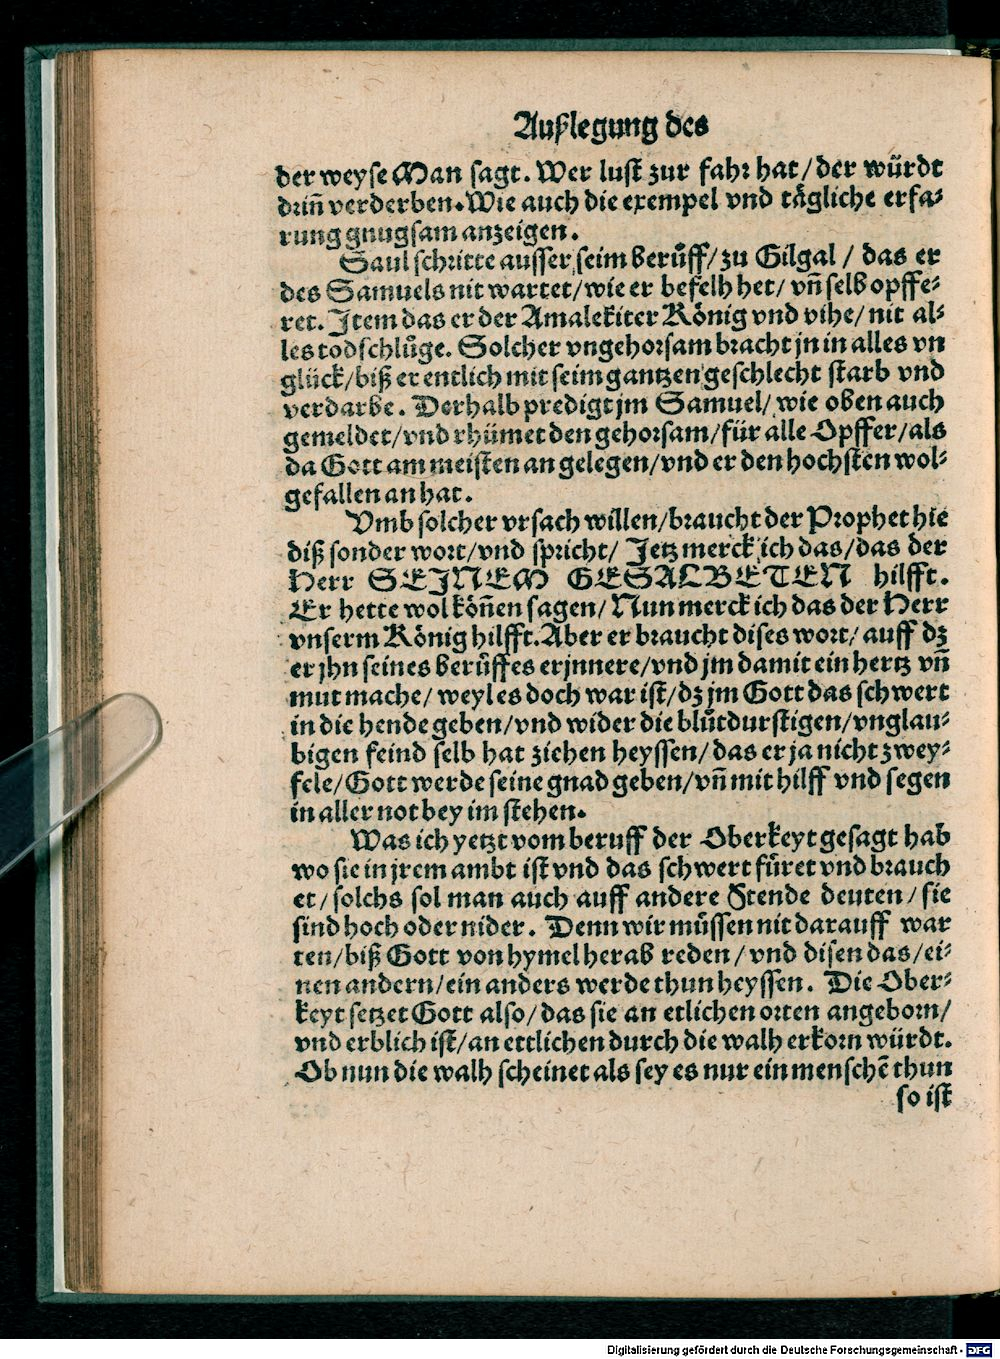 Außlegung des
der weyse Man sagt. Wer lust zur fahr hat/der würdt
drinn̄ verderben. Wie auch die exempel vnd tägliche erfa⸗
rung gnugsam anzeigen.
Saul schritte ausser seim berůff/zu Gilgal / das er
des Samuels nit wartet/wie er befelh het/ vn̄ selb opffe⸗
ret. Item das er der Amalekiter König vnd vihe/ nit al⸗
les todschlůge. Solcher vngehorsam bracht jn in alles vn
glück/biß er entlich mit seim gantzen geschlecht starb vnd
verdarbe. Derhalb predigt jm Samuel/ wie oben auch
gemeldet/vnd rhümet den gehorsam/für alle Opffer/als
da Gott am meisten an gelegen/vnd er den hochsten wol⸗
gefallen an hat.
Vmb solcher vrsach willen/braucht der Prophet hie
diß sonder wort/vnd spricht/ Jetz merck ich das/das der
Herr SEINEM GESALBETEN hilfft.
Er hette wol kön̄en sagen/ Nun merck ich das der Herr
vnserm König hilfft. Aber er braucht dises wort/ auff dz
er jhn seines berůffes erjnnere/vnd jm damit ein hertz vn̄
mut mache/ weyl es doch war ist/ dz jm Gott das schwert
in die hende geben/vnd wider die blůtdurstigen/vnglau⸗
bigen feind selb hat ziehen heyssen/das er ja nicht zwey⸗
fele/Gott werde seine gnad geben/vn̄ mit hilff vnd segen
in aller not bey im stehen.
Was ich yetzt vom beruff der Oberkeyt gesagt hab
wo sie in jrem ambt ist vnd das schwert füret vnd brauch
et/ solchs sol man auch auff andere Stende deuten/ sie
sind hoch oder nider. Denn wir můssen nit darauff war
ten/biß Gott von hymel herab reden / vnd disen das/ei⸗
nen andern/ein anders werde thun heyssen. Die Ober⸗
keyt setzet Gott also/das sie an etlichen orten angeborn/
vnd erblich ist/an ettlichen durch die walh erkorn würdt.
Ob nun die walh scheinet als sey es nur ein mensche̅ thun
so ist
Digitalisierung gefördert durch die Deutsche Forschungsgemeinschaft - DFG